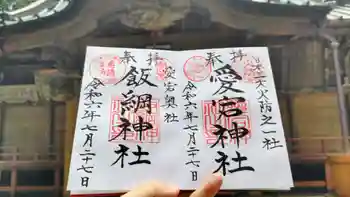 天下火防之一社
奉拝
愛宕神社
令和六年七月二十七日
愛宕奥社
奉拝
飯綱神社
令和六年七月二十七日